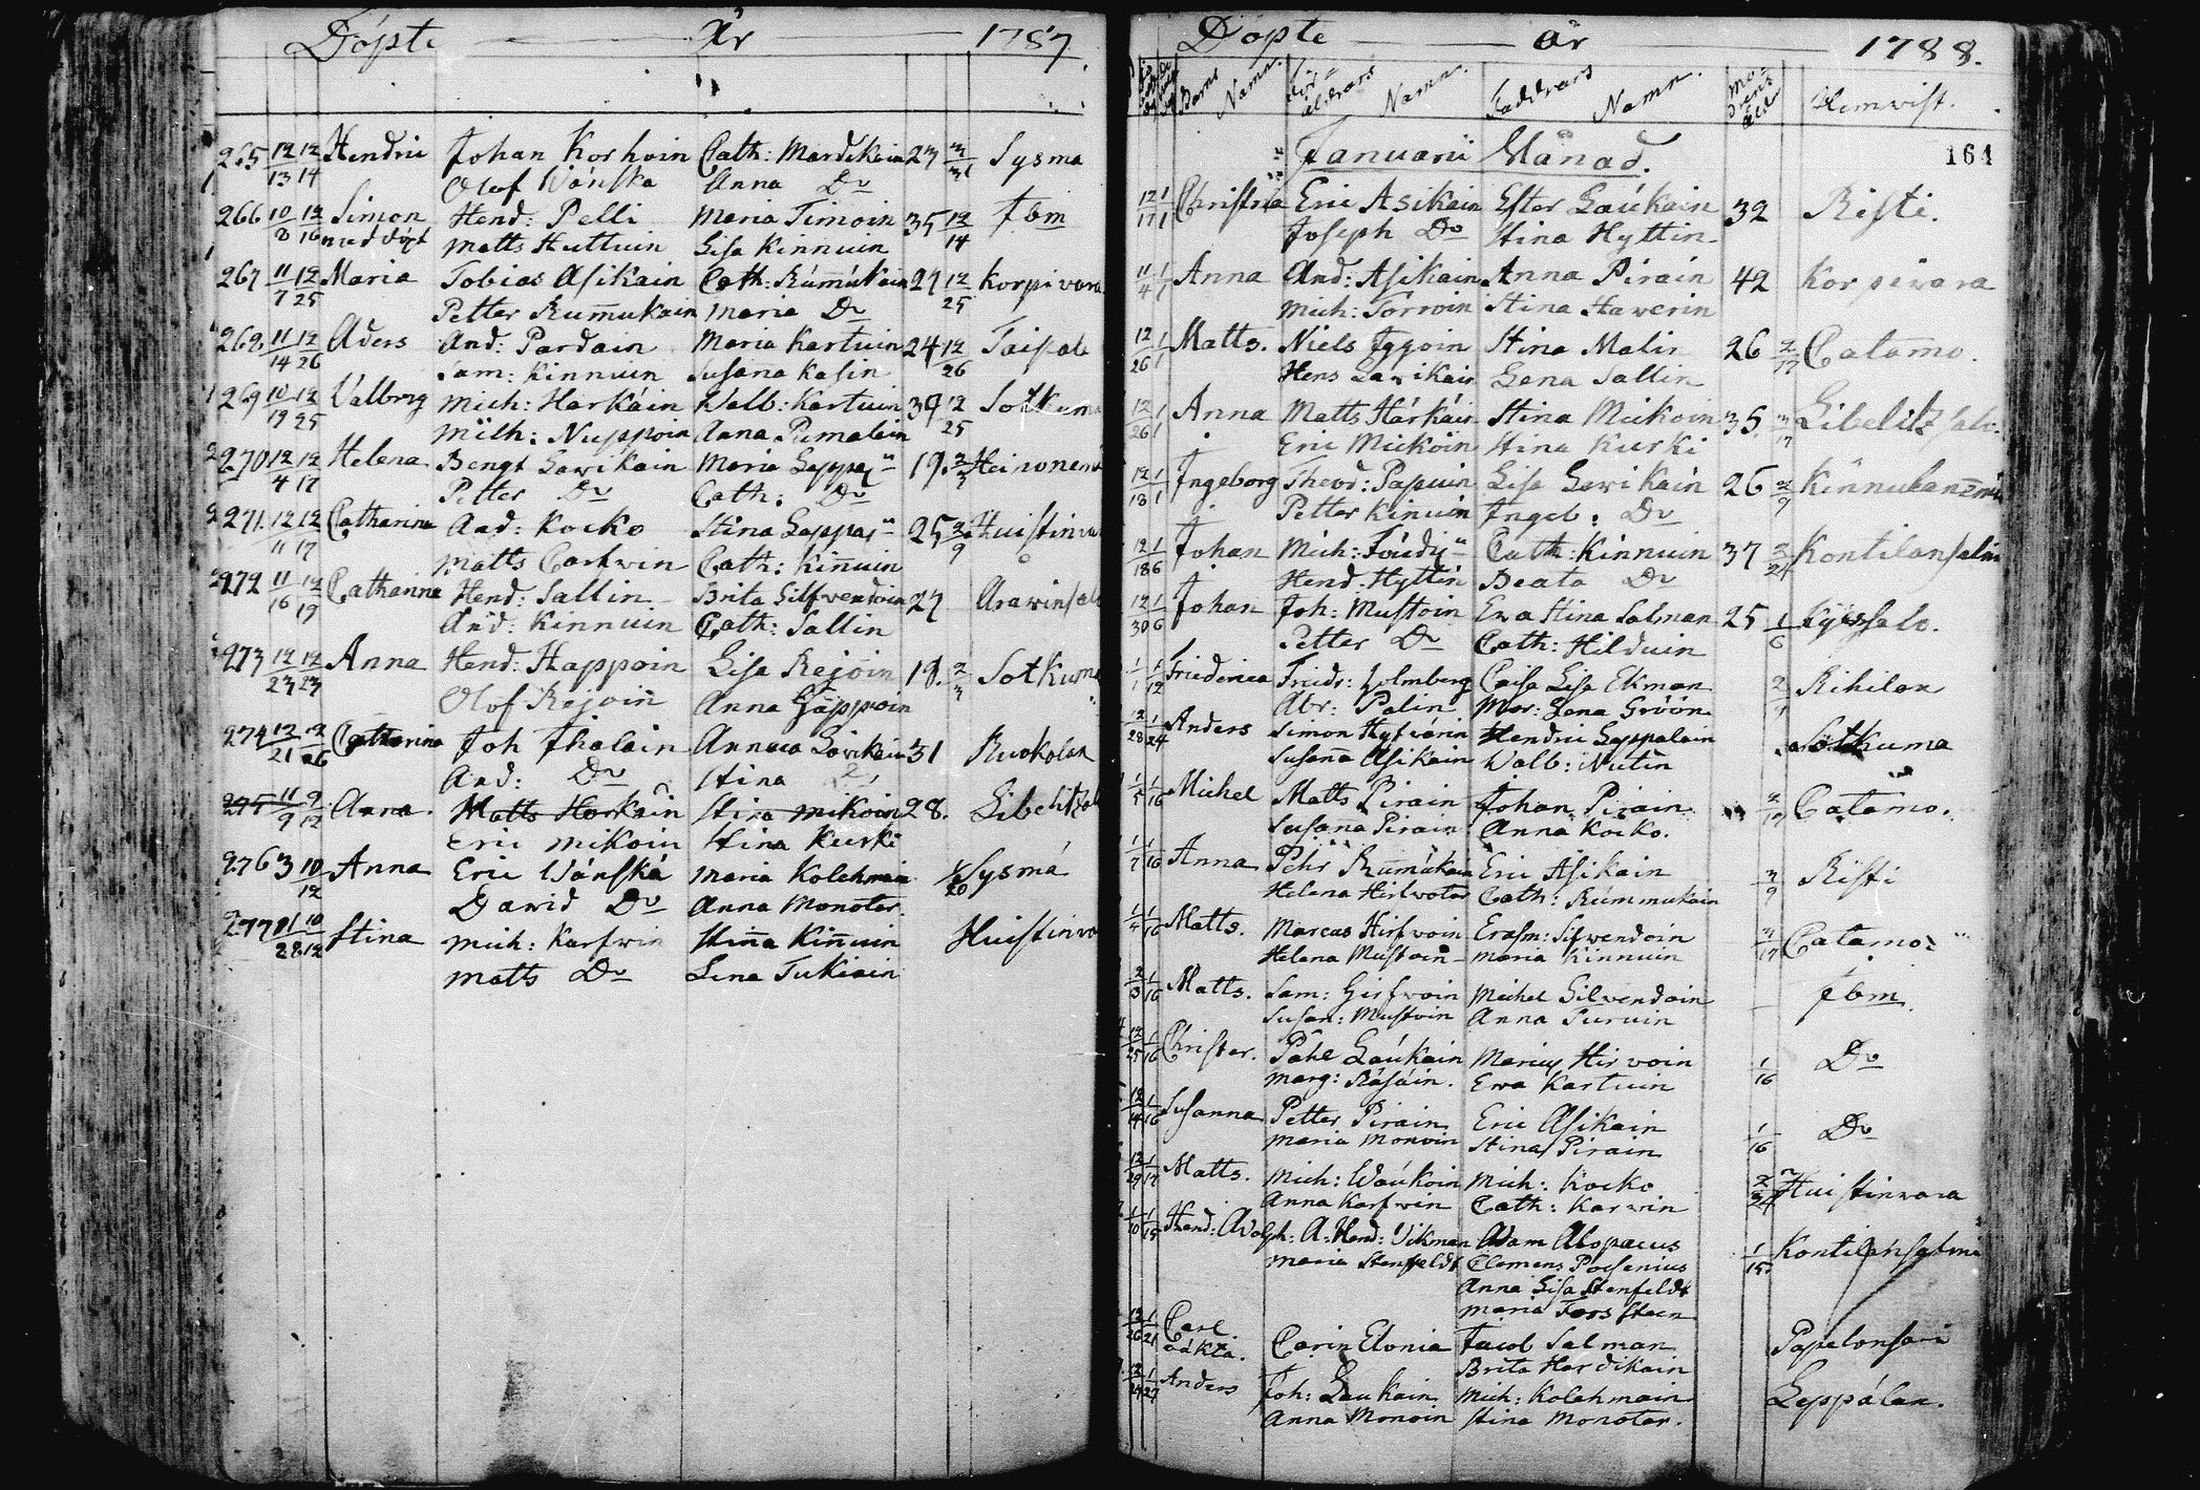 Döpte År 1787
265 12/13 12/14 Hendric Johan Korhoin Cath: Mardikain 23 3/31 Sysma
Olof Wänska Anna Do
266 10/8 12/16 Simon Hend: Pelli Maria Timoin 35 12/14 Ibm
nød döpt Matts Huttuin Lisa Kinnuin
267 11/7 12/25 Maria Tobias Asikain Cath: Rummukain 27 12/25 Korpivara
Petter Rummukain Maria Do
268 11/14 12/26 Aders And: Pardain Maria Kartuin 24 12/26 Taipale
Sam: Kinnuin Susana Kasin
269 10/19 12/25 Valbrng Mich: Harkáin Walb: Kartuin 39 12/25 Sotkuma
Mich: Nuppoin Anna Pumalain
270 12/4 12/17 Helena Bengt Lavikain Maria Leppej 19. 2/3 Heinonem
Petter Do Cath: Do
271. 12/11 12/17 Catharina And: Kocko Stina Leppäs 25 2/9 Huistinva
Matts Carhvin Cath: Kinnuin
272 11/16 12/19 Catharina Hend: Sallin Brita Silfvendoin 27 Aravinsalo
And: Kinnuin Cath: Sallin
273 12/23 12/23 Anna Hend: Happoin Lisa Rejoin 18. 2/3 Sotkuma
Olof Rejoin Anna Gäppoin
274 12/21 12/26 Catharina Joh Ihalain Annca Lavikain 31 Ruokolax
And: Do Stina
275 11/9 9/12 Anna. Matts Harkain Stina Mikoin 28. Libelitzal
Eric Mikoin Stina Kurki
276 3 10/12 Anna Eric Wánská Maria Kolehmain 1/20 Sysmá
David Do Anna Monotar.
277 Stina Mich: Karhvin Stina Kinnuin Huistinva
Matts Do Lena Tukiain
Döpte år 1788.
Barns Namn. För=äldrars Namn. Faddrars Namn. Mo=drens åld Hemvist.
Januarii Månad. 164
12/17 1/1 Christina Eric Asikain Ester Laukain 32 Risti.
Joseph Do Stina Hyttin
11/4 1/1 Anna And: Asikain Anna Pirain 42 Korpivara
Mich: Torvoin Stina Haverin
12/26 1/1 Matts. Niels Iggoin Stina Malin 26 2/17 Catamo.
Hens Lavikain Lena Sallin
12/26 1/1 Anna Matts Hárkáin Stina Mickoin 35. 3/17 Libelitz salo.
Eric Mickoin Stina Kurki
12/18 1/1 Ingeborg Theod: Papuin Lisa Lavikain 26 2/9 Kinnulanniemi
Petter Kinuin Ingeb: Do
12/18 1/6 Johan Mich: Toudy Cath: Kinnuin 37 2/24 Kontilansalmi
Hend. Hyttin Beata Do
12/30 1/6 Johan Joh: Mustoin Eva Stina Salman 25 1/6 Kyössalo.
Petter Do Cath: Hilduin
1/1 1/12 Friederica Fridr: Holmberg Caisa Lisa Ekman Rihilax
Abr: Palin Mar: Lena Gröön
12/28 1/24 Anders Simon Hyfvärin Hendric Leppalain Sotkuma
Susanna Asikain Walb: Nutin
1/5 1/16 Michel Matts Pirain Johan Pirain 2/17 Catamo.
Susanna Pirain Anna Kocko.
1/7 1/16 Anna Pehr Rummukain Eric Asikain 3/9 Risti
Helena Hirivotar Cath: Rummukain
1/4 1/16 Matts. Marcus Hirfvoin Erasm: Silfvendoin 3/17 Catamo
Helena Mustoin Maria Kinnuin
2/3 1/16 Matts. Sam: Hirfvoin Michel Silvendoin Ibm.
Susan: Mustoin Anna Turuin
12/25 1/16 Christer. Påhl Laukain Marius Hirvoin 1/16 Do
Marg: Rásáin. Ewa Kartuin
12/14 1/16 Susanna Petter Pirain Eric Asikain 1/16 Do
Maria Monoin Stina Pirain
12/29 1/17 Matts. Mich: Waukoin Mich: Kocko 2/24 Huistinvara
Anna Karfvin Cath: Karvin
1/10 1/15 Hend: Adolph: A: Hend: Vikman Adam Alopaeus 1/15 Kontilansalmi
Maria Stenfeldt Clemens Pocsenius
Anna Lisa Stenfeldt
Maria Forssteen
12/26 1/21 Carl. Carin Elonia Jacob Salman Papelonsari
oäkta. Brita Hardikain
12/24 1/27 Anders Joh: Laukain Mich: Kolehmain Leppálax.
Anna Monoin Stina Monotar.